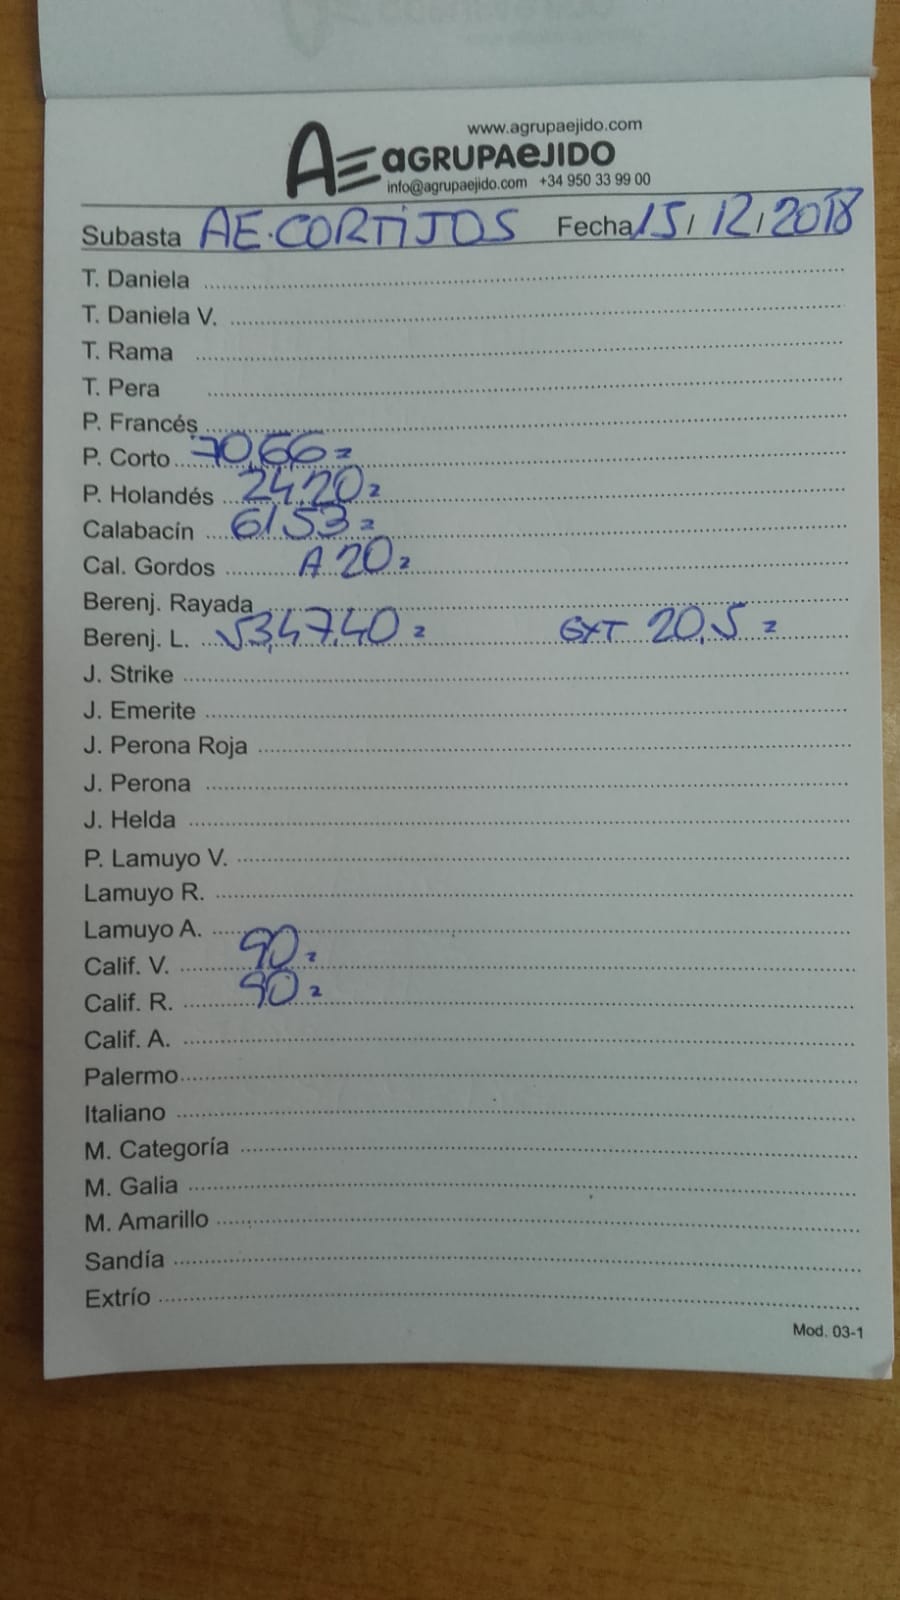 www.agrupaejido.com
AE aGRUPAeJIDO
info@agrupaejido.com +34 950 33 99 00
Subasta AE.CORTIJOS Fecha 15/12/2018
T. Daniela
T. Daniela V.
T. Rama
T. Pera
P. Francés
P. Corto 70,66 z
P. Holandés 24,20 z
Calabacín 61,53 z
Cal. Gordos A 20 z
Berenj. Rayada
Berenj. L. 53,47,40 z EXT 20,5 z
J. Strike
J. Emerite
J. Perona Roja
J. Perona
J. Helda
P. Lamuyo V.
Lamuyo R.
Lamuyo A.
Calif. V. 90 z
Calif. R. 90 z
Calif. A.
Palermo
Italiano
M. Categoría
M. Galia
M. Amarillo
Sandía
Extrío
Mod. 03-1